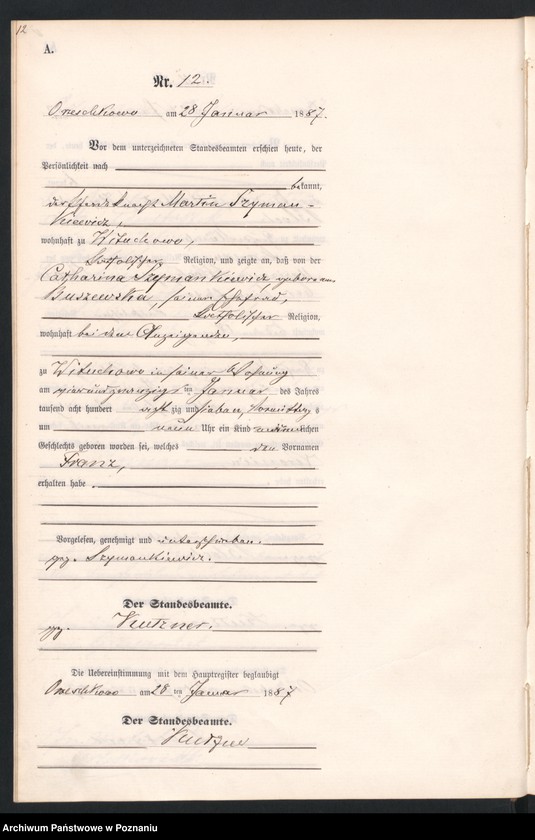 12
A.
Nr. 12.
Orzeschkowo am 28 Januar 1887.
Vor dem unterzeichneten Standesbeamten erschien heute, der
Persönlichkeit nach
bekannt,
der Pferdeknecht Martin Szyman-
kiewicz,
wohnhaft zu Wituchowo,
katholischer Religion, und zeigte an, daß von der
Catharina Szymankiewicz, geborenen
Buszewska, seiner Ehefrau,
katholischer Religion,
wohnhaft bei dem Anzeigenden,
zu Wituchowo in seiner Wohnung
am vierundzwanzigsten Januar des Jahres
tausend acht hundert achtzig und sieben, Vormittags
um neun Uhr ein Kind männlichen
Geschlechts geboren worden sei, welches den Vornamen
Franz,
erhalten habe.
Vorgelesen, genehmigt und unterschrieben.
gez. Szymankiewicz.
Der Standesbeamte.
gez. Kutzner.
Die Uebereinstimmung mit dem Hauptregister beglaubigt
Orzeschkowo am 28 ten Januar 1887
Der Standesbeamte.
Kutzner
Archiwum Państwowe w Poznaniu